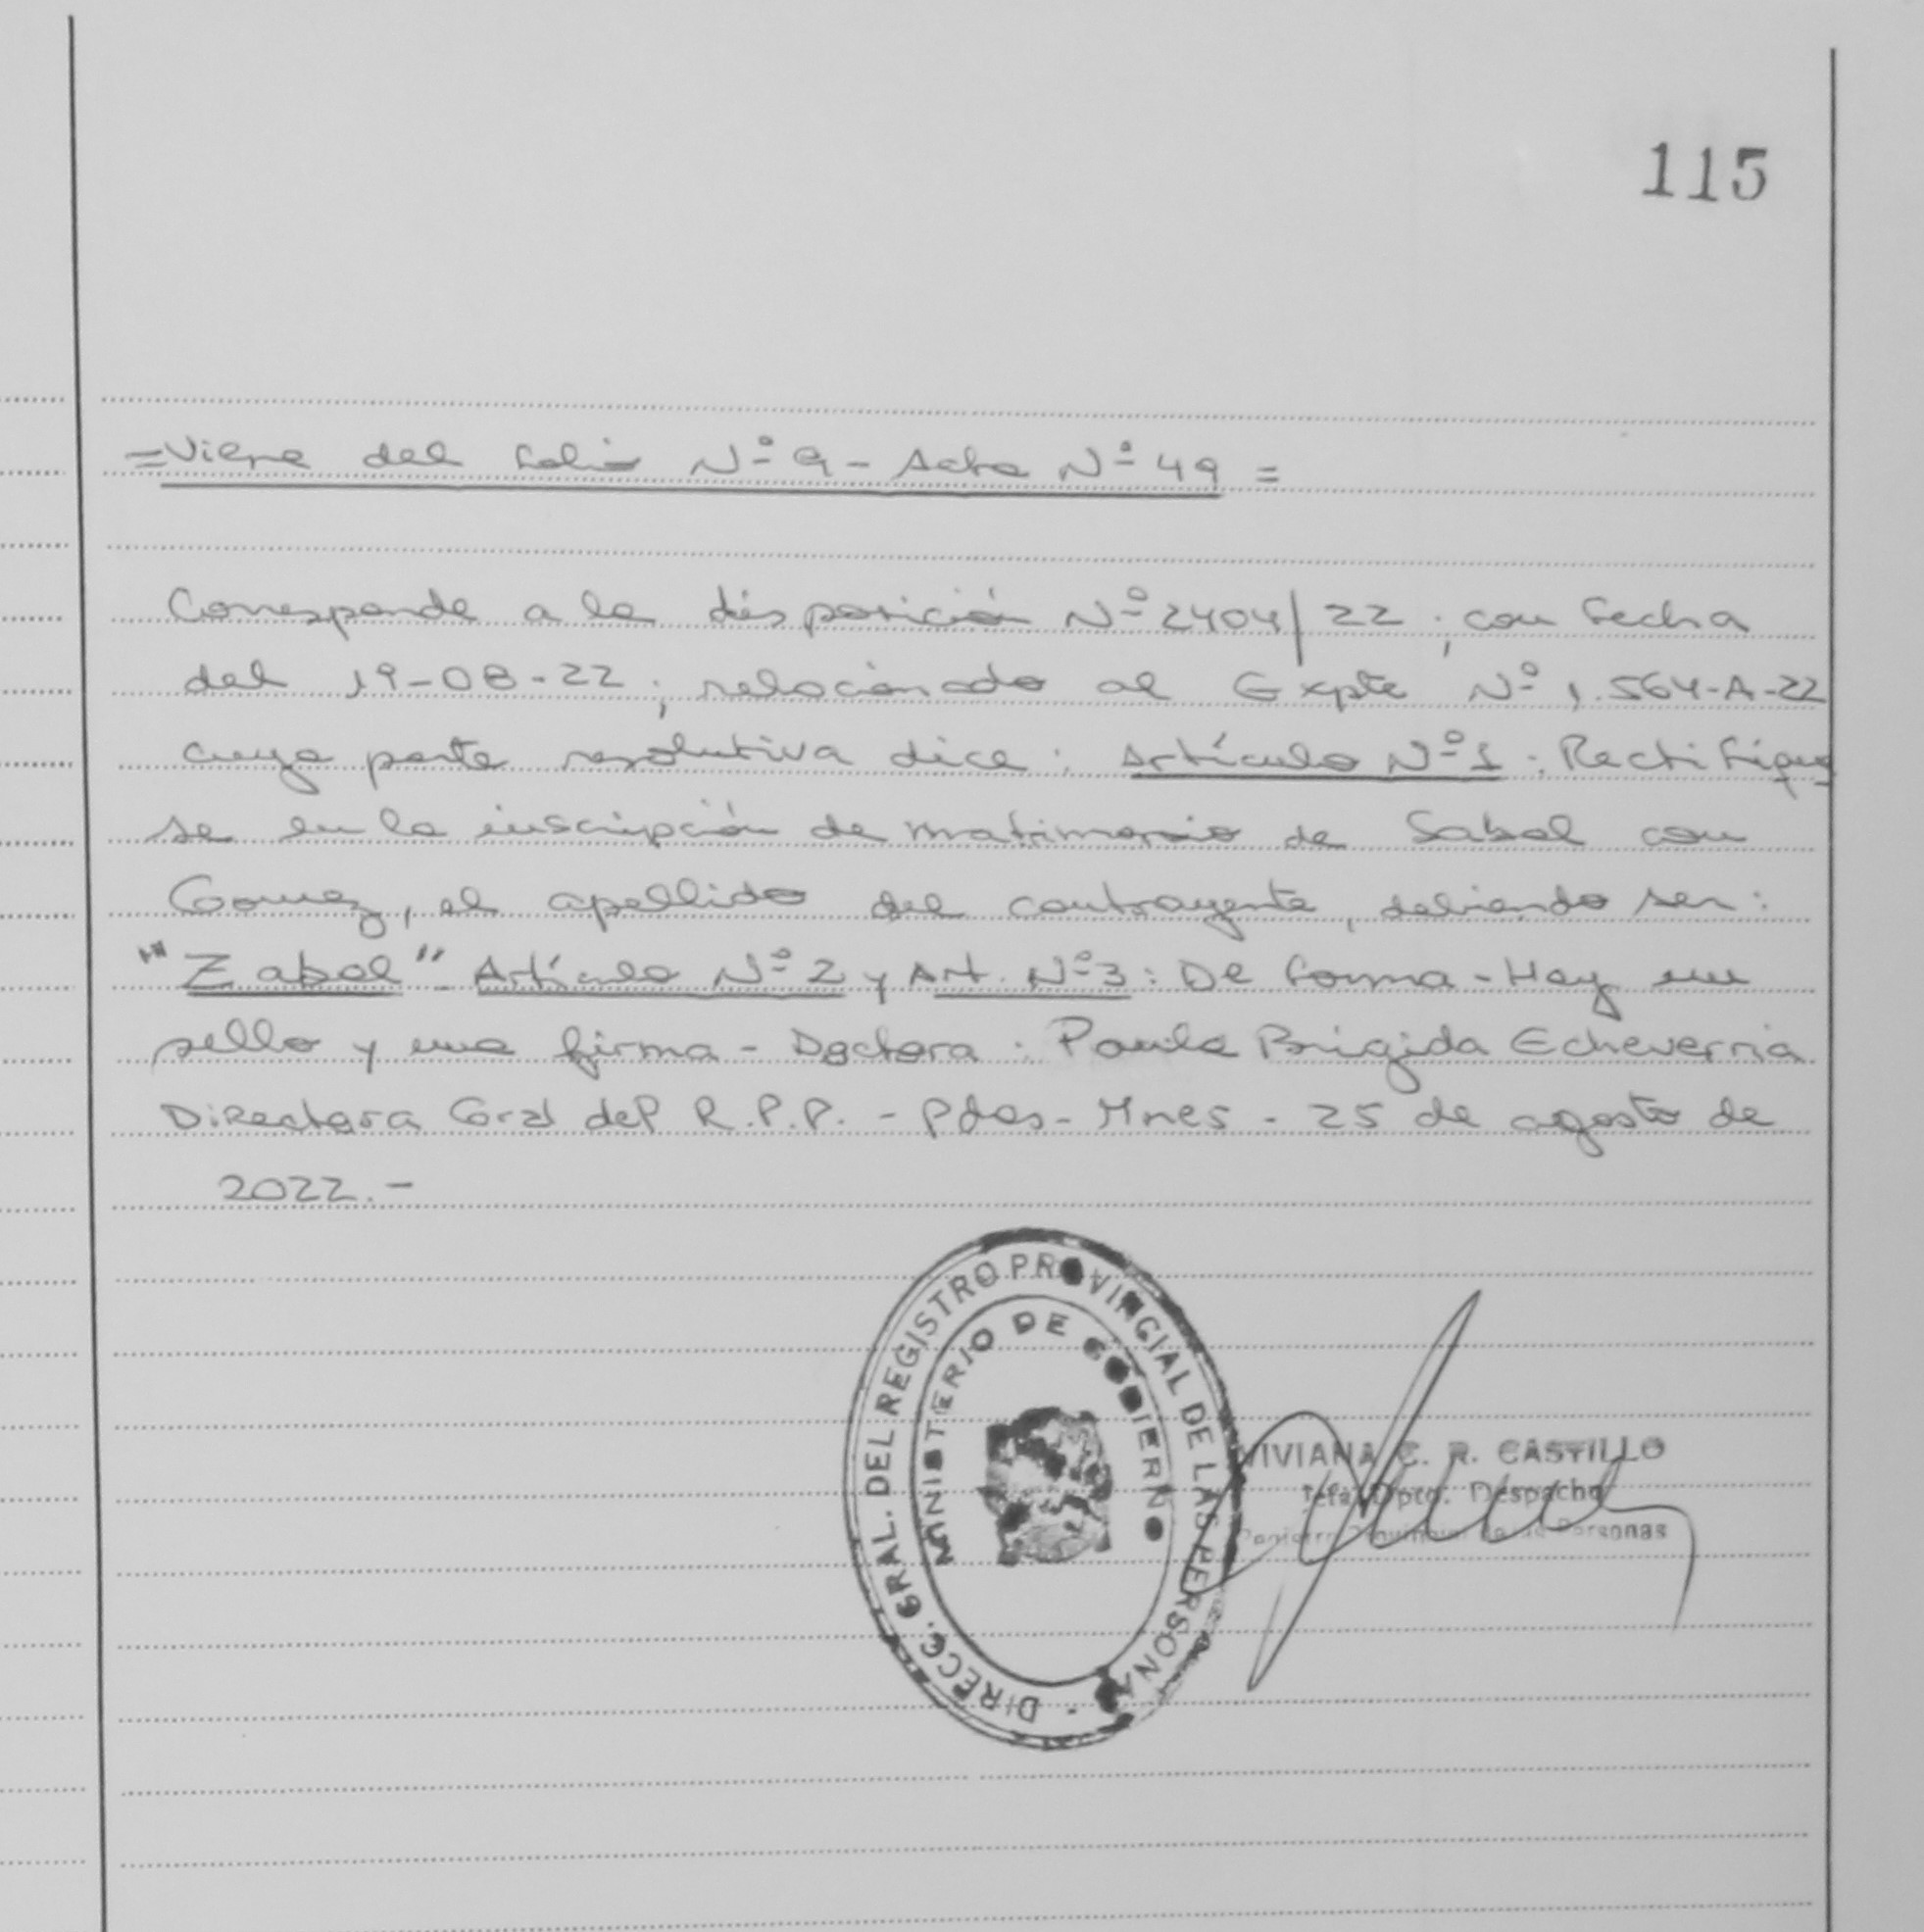 115
=Viene del folio Nº 9 - Acta Nº 49 =
Corresponde a la disposición Nº 2404/22; con fecha
del 19-08-22; relacionado al Expte Nº 1.564-A-22
cuya parte resolutiva dice: Artículo Nº 1: Rectifíque
se en la inscripción de matrimonio de Sabal con
Gomez, el apellido del contrayente, debiendo ser:
"Zabal" - Artículo Nº 2 y Art. Nº 3: De forma - Hay un
sello y una firma - Doctora: Paula Brigida Echeverria
Directora Gral del R.P.P. - Pdas - Mnes - 25 de agosto de
2022.-
DIRECC. GRAL. DEL REGISTRO PROVINCIAL DE LAS PERSONA
MINISTERIO DE GOBIERNO
VIVIANA C. R. CASTILLO
Jefa Dpto. Despacho
Provincial de las Personas